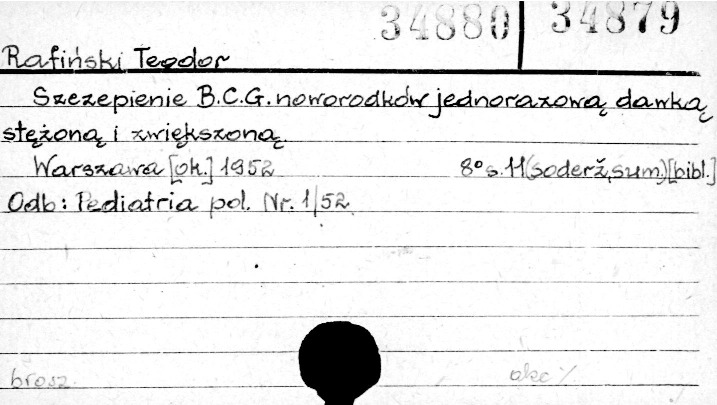 34880 34879
Rafiński Teodor
Szczepienie B.C.G. noworodków jednorazową dawką
stężoną i zwiększoną.
Warszawa [ok.] 1952 8° s. 11 (soderž, sum.) [bibl.]
Odb: Pediatria pol. Nr. 1/52
brosz. akc